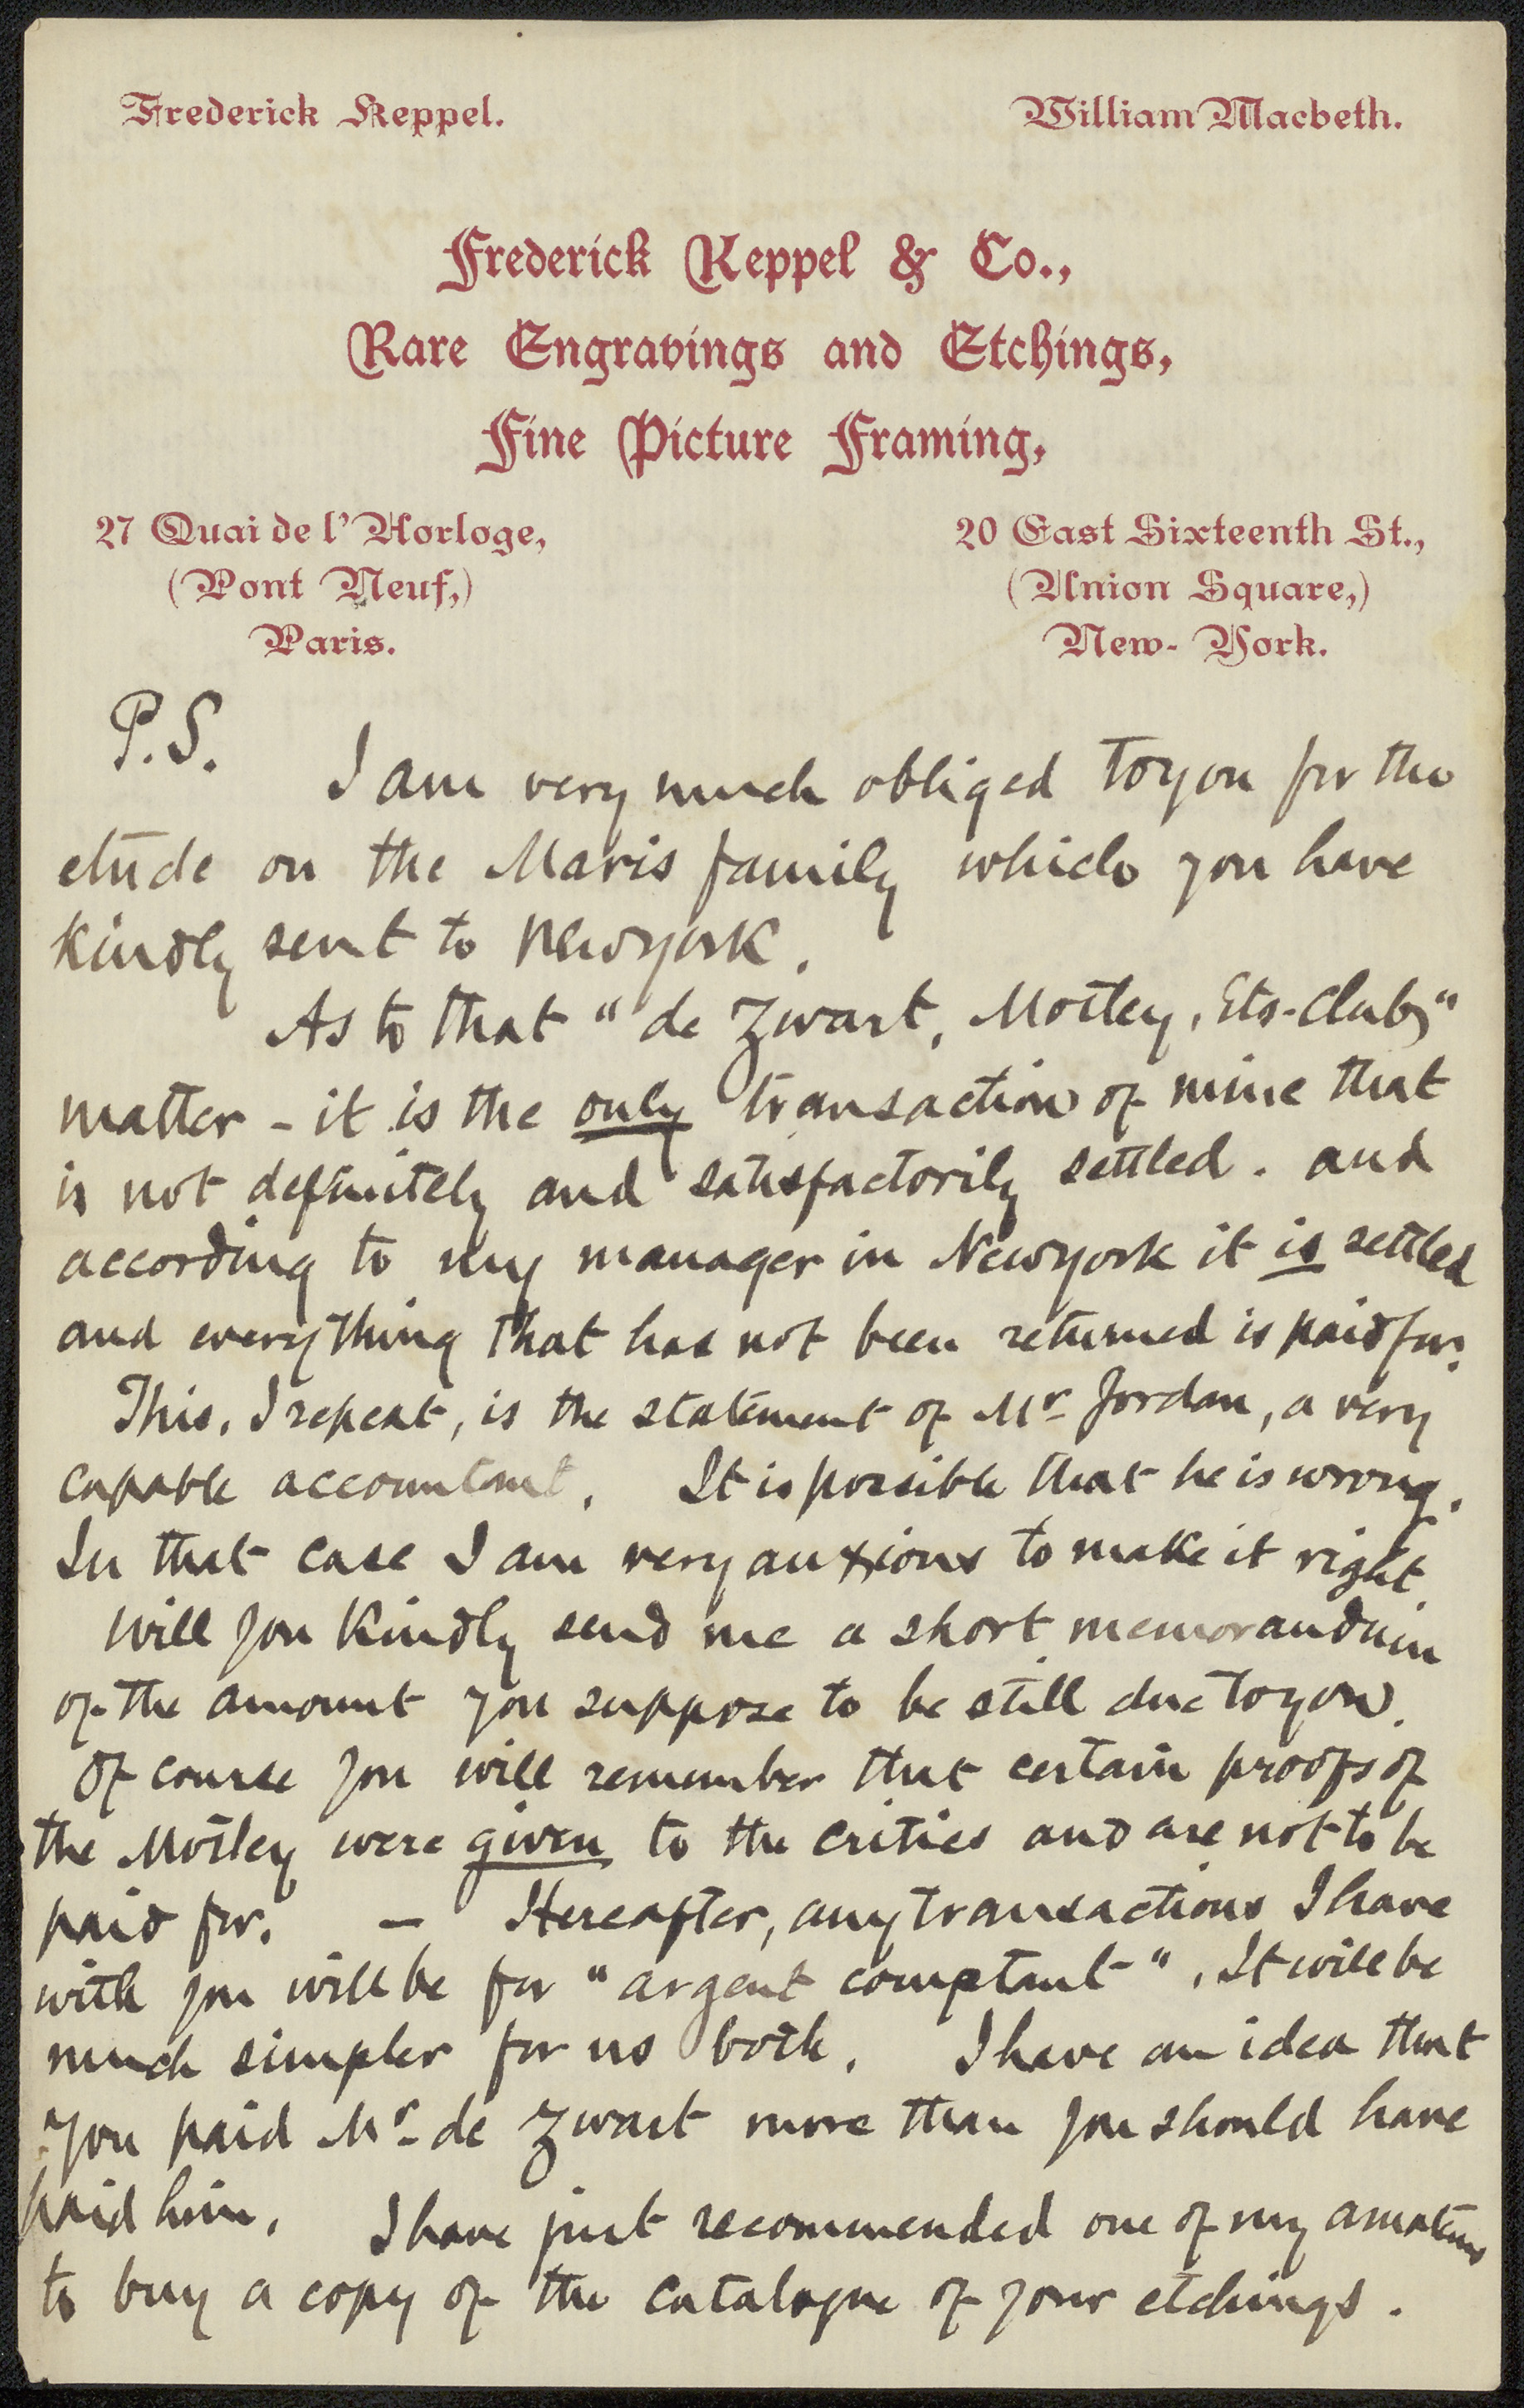 Frederick Keppel.
William Macbeth.
Frederick Keppel & Co.,
Rare Engravings and Etchings,
Fine Picture Framing,
27 Quai de l'Horloge,
(Pont Neuf,)
Paris.
20 East Sixteenth St.,
(Union Square,)
New-York.
P.S.
I am very much obliged to you for the
etude on the Maris family which you have
kindly sent to New york.
As to that "de Zwart, Motley, Etg-Club"
matter - it is the only transaction of mine that
is not definitely and satisfactorily settled. and
according to my manager in New york it is settled
and everything that has not been returned is paid for.
This, I repeat, is the statement of Mr Jordan, a very
capable accountant. It is possible that he is wrong.
In that case I am very anxious to make it right.
Will you kindly send me a short memorandum
of the amount you suppose to be still due to you.
Of course you will remember that certain proofs of
the Motley were given to the critics and are not to be
paid for. - Hereafter, any transactions I have
with you will be for "argent comptant". It will be
much simpler for us both. I have an idea that
you paid Mr de Zwart more than you should have
paid him. I have just recommended one of my amateurs
to buy a copy of the catalogue of your etchings.